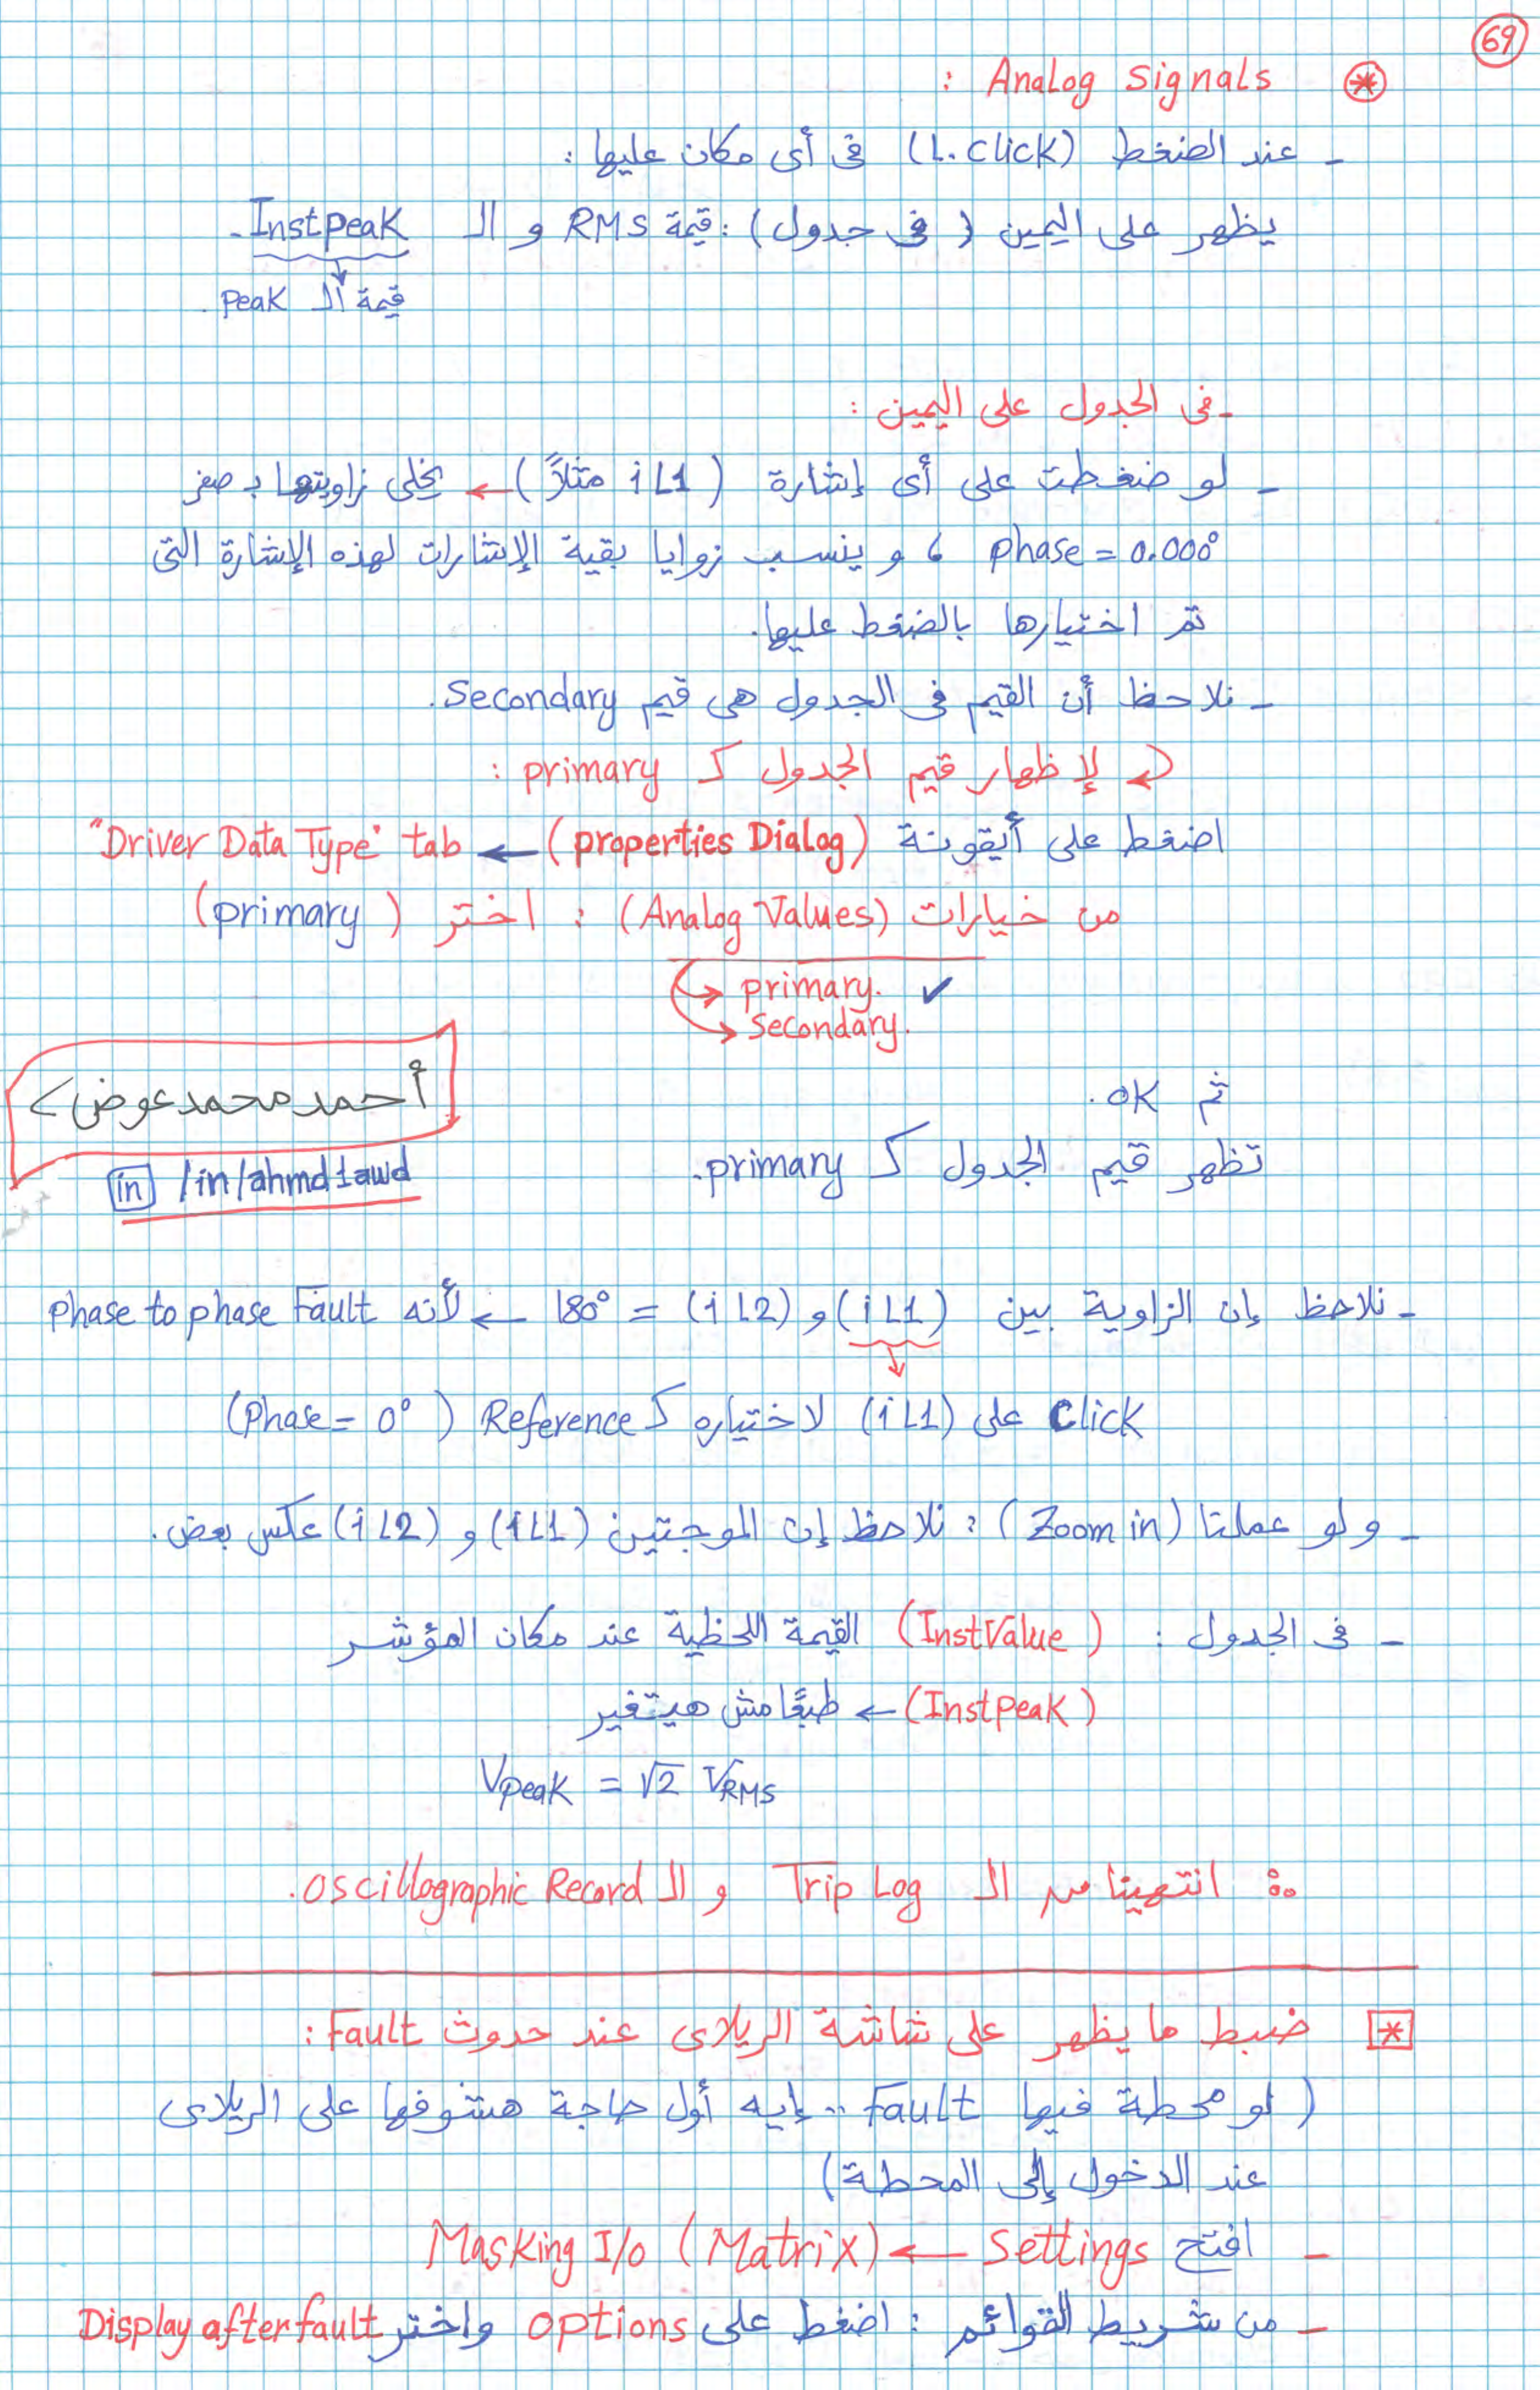 69
⊛ Analog Signals :
- عند الضغط (L.click) فى أى مكان عليها :
يظهر على اليمين ( فى جدول ) : قيمة RMS و الـ InstPeak -
↓
قيمة الـ Peak .
- فى الجدول على اليمين :
- لو ضغطت على أى إشارة ( iL1 مثلاً ) ← يخلى زاويتها بـ صفر
phase = 0.000° ، و ينسب زوايا بقية الإشارات لهذه الإشارة التى
تم اختيارها بالضغط عليها.
- نلاحظ أن القيم فى الجدول هى قيم Secondary.
لإظهار قيم الجدول كـ primary :
اضغط على أيقونة (properties Dialog) ← "Driver Data Type" tab
من خيارات (Analog Values) : اختر ( primary )
→ primary. ✓
→ Secondary.
ثم OK .
أحمد محمد عوض
تظهر قيم الجدول كـ primary.
in /in/ahmd1awd
- نلاحظ إن الزاوية بين (iL1) و (iL2) = 180° ← لأنه phase to phase Fault
↓
Click على (iL1) لاختياره كـ Reference ( Phase = 0° )
- و لو عملنا (Zoom in) : نلاحظ إن الموجتين (iL1) و (iL2) عكس بعض .
- فى الجدول : ( InstValue ) القيمة اللحظية عند مكان المؤشر
( InstPeak ) ← طبعًا مش هيتغير
Vpeak = √2 VRMS
∴ انتهينا من الـ Trip Log و الـ Oscillographic Record.
[*] ضبط ما يظهر على شاشة الريلاى عند حدوث Fault :
( لو محطة فيها Fault .. إيه أول حاجة هتشوفها على الريلاى
عند الدخول إلى المحطة)
- افتح Settings ← Masking I/O (Matrix)
- من شريط القوائم : اضغط على options واختر Display after fault